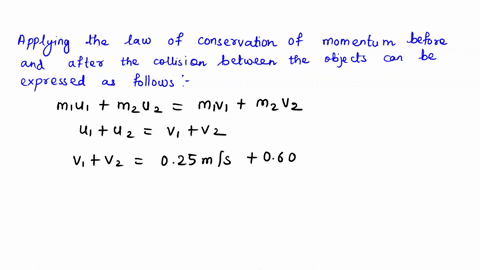 Applying the law of conservation of momentum before
and after the collision between the objects can be
expressed as follows :-
m₁u₁ + m₂u₂ = m₁v₁ + m₂v₂
u₁ + u₂ = v₁ + v₂
v₁ + v₂ = 0.25 m/s + 0.60